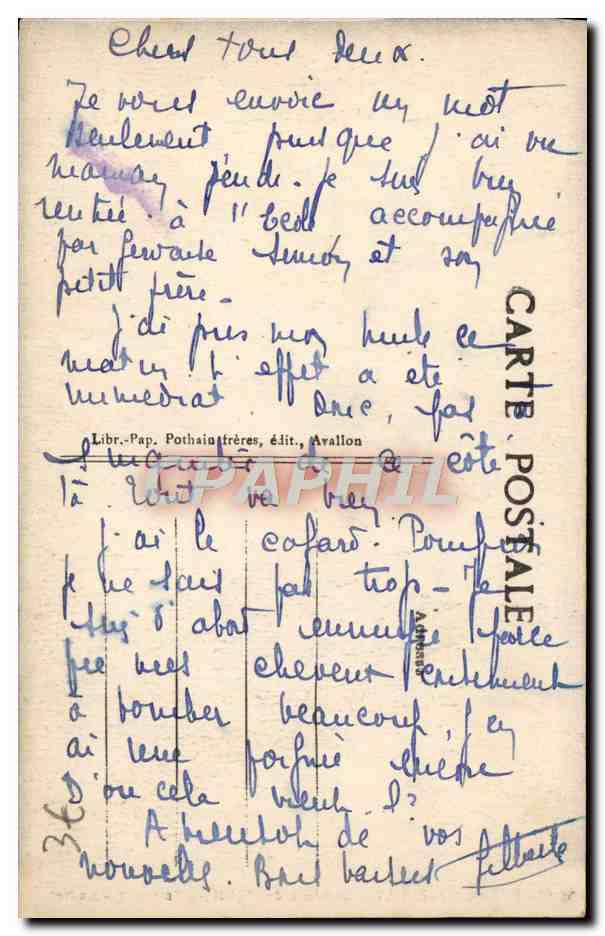 Chers tous deux.
Je vous envoie un mot
seulement, puisque j'ai vu
maman jeudi. Je suis bien
rentrée à l'école accompagnée
par Gervaise Simon et son
petit frère.
J'ai pris mon huile ce
matin, l'effet a été
immédiat. Donc, pas
de ce côté
là tout va bien
j'ai le cafard. Pourquoi
je ne sais pas trop. Je
suis d'abord ennuyée parce
que mes cheveux continuent
à tomber beaucoup, j'en
ai une poignée encore
D'où cela vient-il?
A bientôt de vos
nouvelles. Bons baisers Gilberte
CARTE POSTALE
Adresse
Libr.-Pap. Pothain frères, édit., Avallon
CPAPHIL
3€